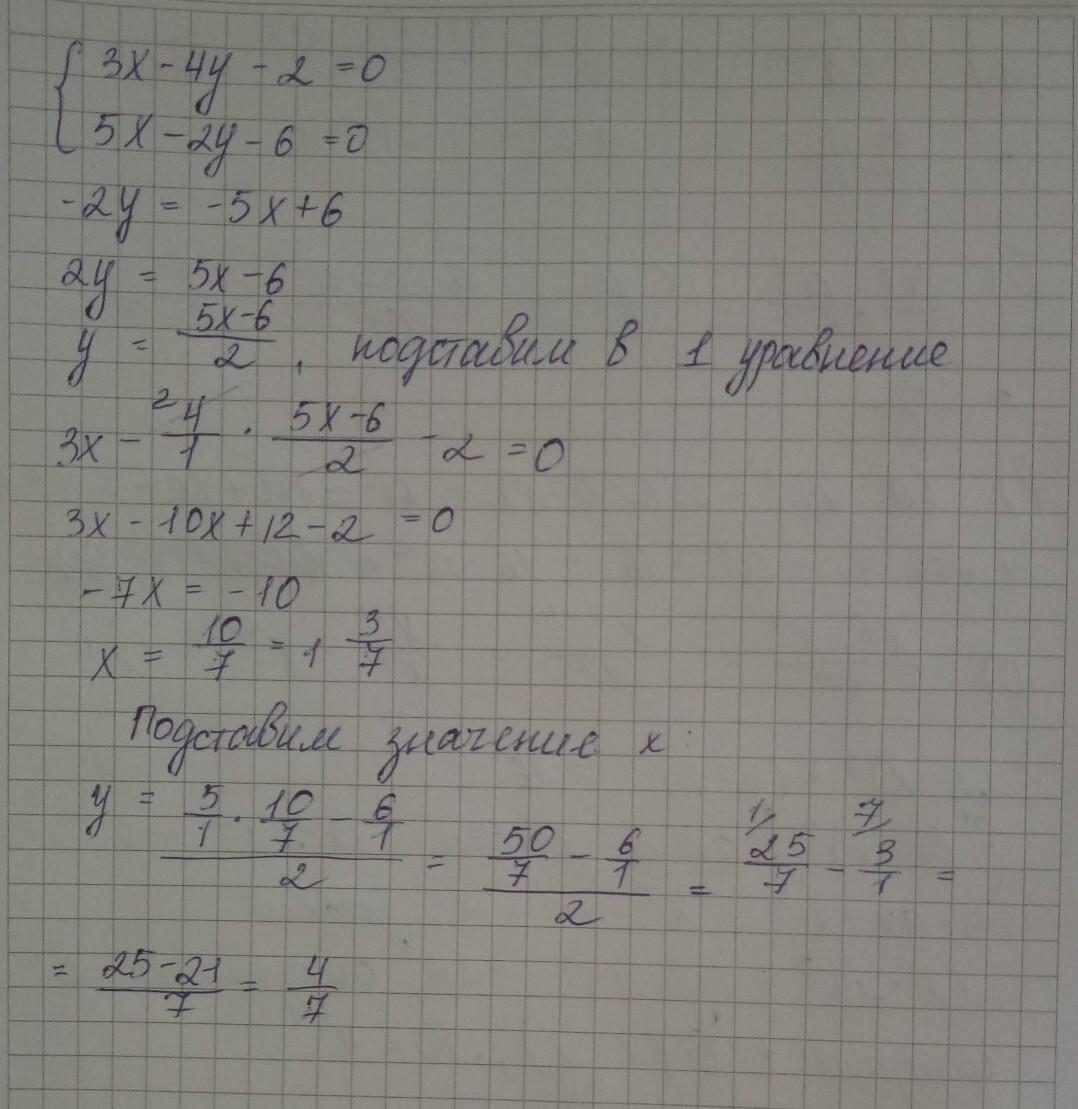 { 3x - 4y - 2 = 0
5x - 2y - 6 = 0
-2y = -5x + 6
2y = 5x - 6
y = (5x-6)/2, подставим в 1 уравнение
3x - ²4/1 · (5x-6)/2 - 2 = 0
3x - 10x + 12 - 2 = 0
-7x = -10
x = 10/7 = 1 3/7
Подставим значение x:
y = (5/1 · 10/7 - 6/1)/2 = (50/7 - 6/1)/2 = ¹⁄25/7 - ⁷⁄3/1 =
= (25-21)/7 = 4/7